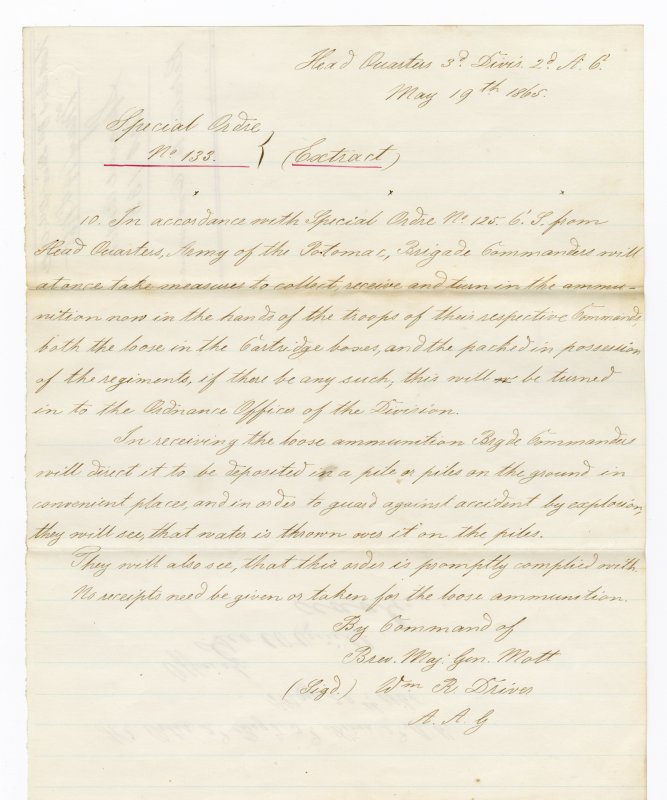 Head Quarters 3d Divis. 2d A. C.
May 19th 1865.
Special Ordre
No 133. } (Extract)
x x x
10. In accordance with Special Ordre No 125. C. S. from
Head Quarters, Army of the Potomac, Brigade Commanders will
at once take measures to collect, receive and turn in the ammu-
nition now in the hands of the troops of their respective Commands,
both the loose in the Cartridge boxes, and the packed in possession
of the regiments, if there be any such, this will be turned
in to the Ordnance Officer of the Division.
In receiving the loose ammunition Bigde Commanders
will direct it to be deposited in a pile or piles on the ground in
convenient places, and in order to guard against accident by explosion,
they will see, that water is thrown over it on the piles.
They will also see, that this order is promptly complied with.
No receipts need be given or taken for the loose ammunition.
By Command of
Brev. Maj. Gen. Mott
(Sigd.) Wm R. Driver
A. A. G